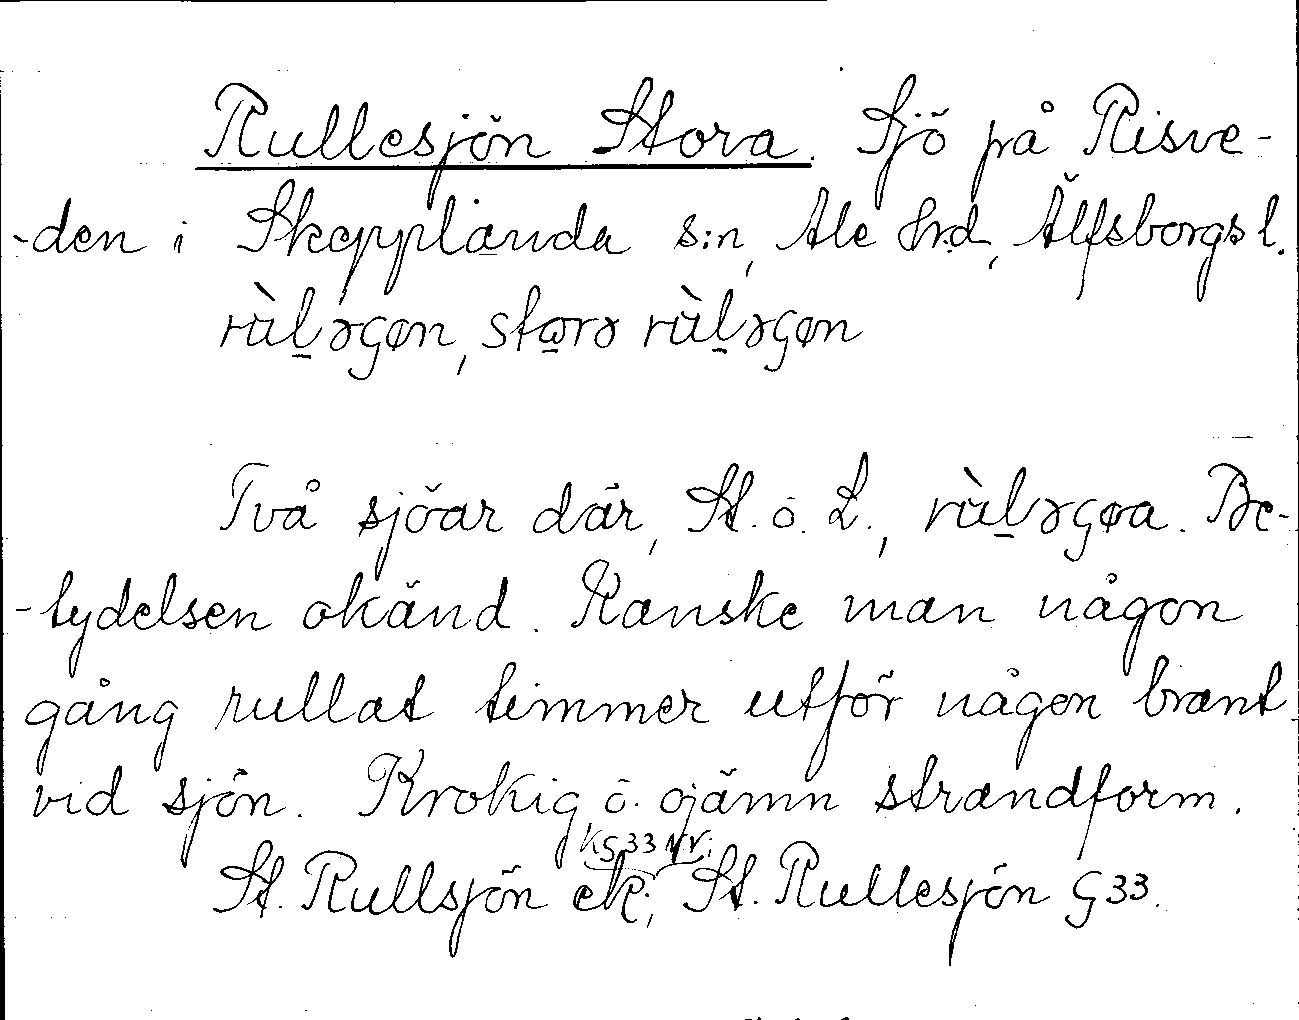 Rullesjön Stora. Sjö på Risve-
-den i Skepplanda s:n, Ale hrd, Älfsborgs l.
rùlɘgøn, stɷrɘ rùlɘgøn
Två sjöar där, St. o. L., rùlɘgøa. Be-
-tydelsen okänd. Kanske man någon
gång rullat timmer utför någon brant
vid sjön. Krokig o. ojämn strandform.
KG33 NV:
St. Rullsjön ek., St. Rullesjön G33.